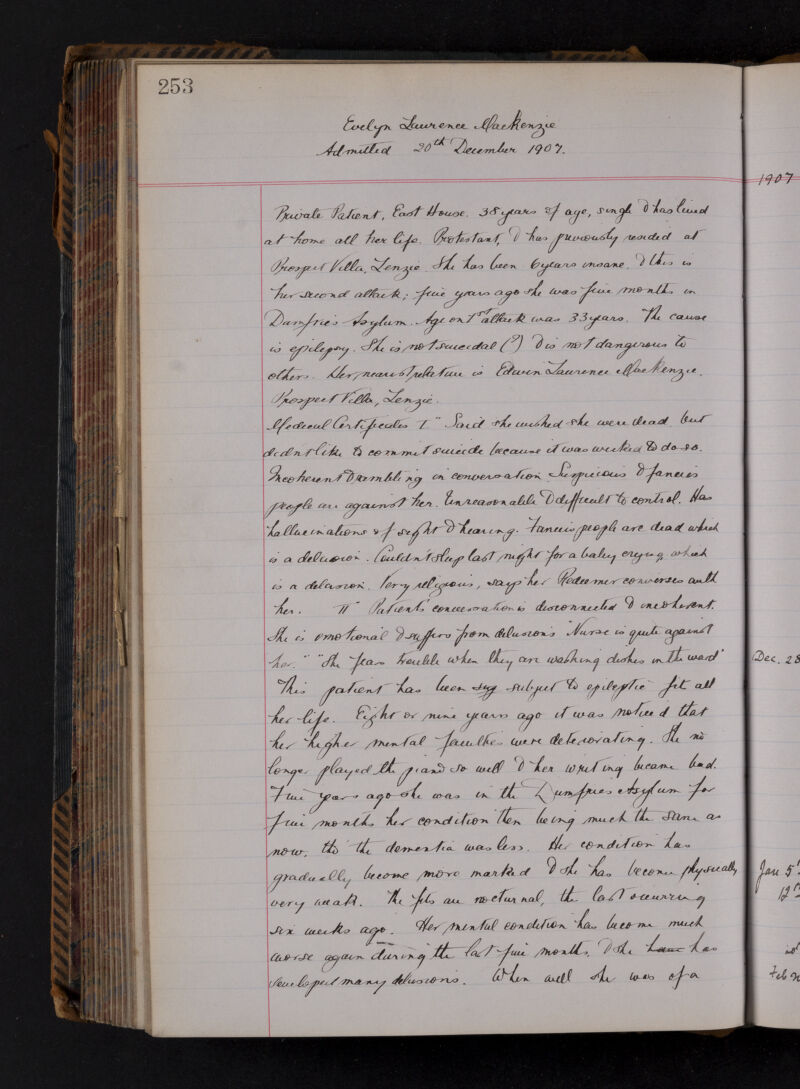 253
Evelyn Laurence MacKenzie
Admitted 20th December 1907.
1907
Private Patient, East House. 38 years of age, single & has lived
at home all her life. Protestant, & has previously resided at
Prospect Villa, Lenzie. She has been 6 years insane, & this is
her second attack; five years ago she was five months in
Dumfries Asylum. Age on 1st attack was 33 years. The cause
is epilepsy. She is not suicidal (?) & is not dangerous to
others. Her nearest relative is Edwin Laurence MacKenzie.
Prospect Villa, Lenzie.
Medical Certificates I " Said she wished she were dead but
didn't like to commit suicide because it was wicked to do so.
Incoherent & rambling in conversation. Suspicious & fancies
people are against her. Unreasonable & difficult to control. Has
hallucinations of sight & hearing. Fancies people are dead which
is a delusion. Couldn't sleep last night for a baby crying which
is a delusion. Very religious, says her Redeemer converses with
her. II" Patient's conversation is disconnected & incoherent.
She is emotional & suffers from delusions "Nurse is quite against
her." "She fears trouble when they are washing dishes in the ward"
This patient has been subject to epileptic fits all
her life. Eight or nine years ago it was noticed that
her higher mental faculties were deteriorating. She no
longer played the piano so well & her writing became bad.
Five years ago she was in the Dumfries Asylum for
five months her condition then being much the same as
now, tho' the dementia was less. Her condition has
gradually become more marked & she has become physically
very weak. The fits are nocturnal, the last occurring
six weeks ago. Her mental condition has become much
worse again during the last five months, & she have has
developed many delusions. When well she was of a
Dec. 28
Jan 5
12
Feb